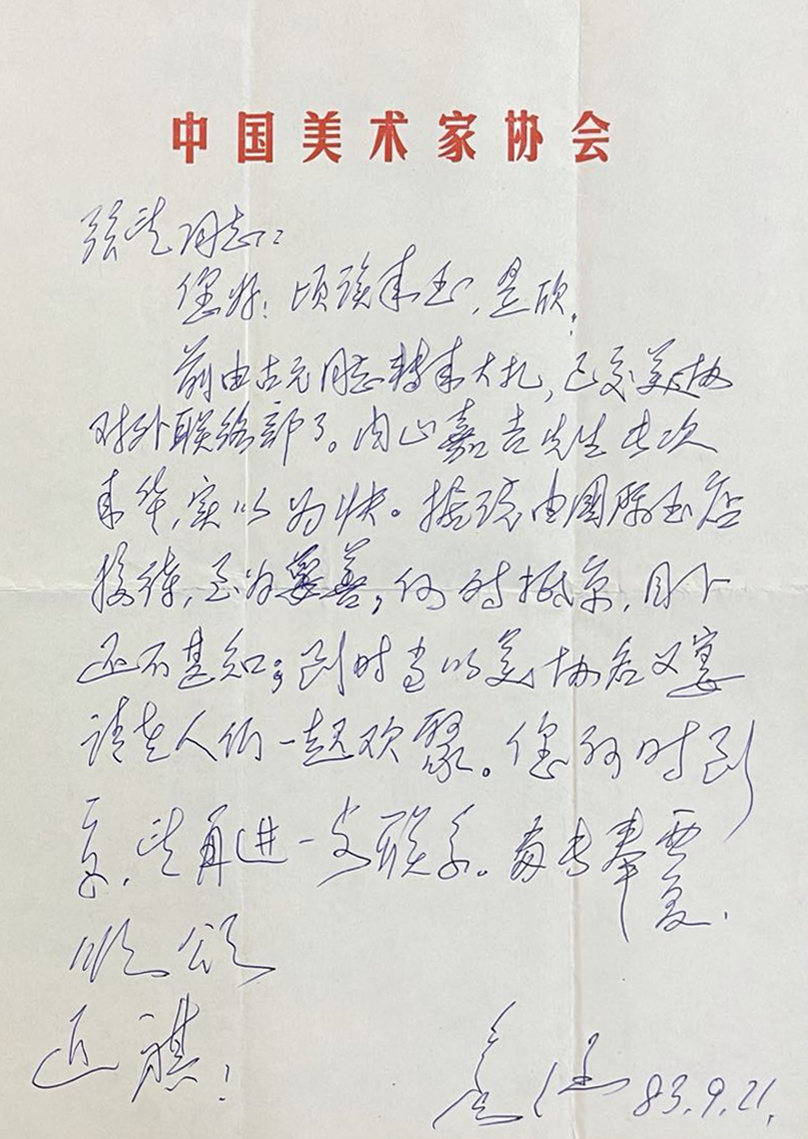 中国美术家协会
张望同志:
您好!顷诵来书,是欣。
前由古元同志转来大札,已交美协
对外联络部了。内山嘉吉先生专次
来华,实以为快。据该由国际书店
接待,至为妥善;何时抵京,目下
还不甚知;到时当以美协名义宴
请老人们一起欢聚。您何时到
京,望再进一步联系。专奉
复,
顺颂
近祺!
83.9.21.